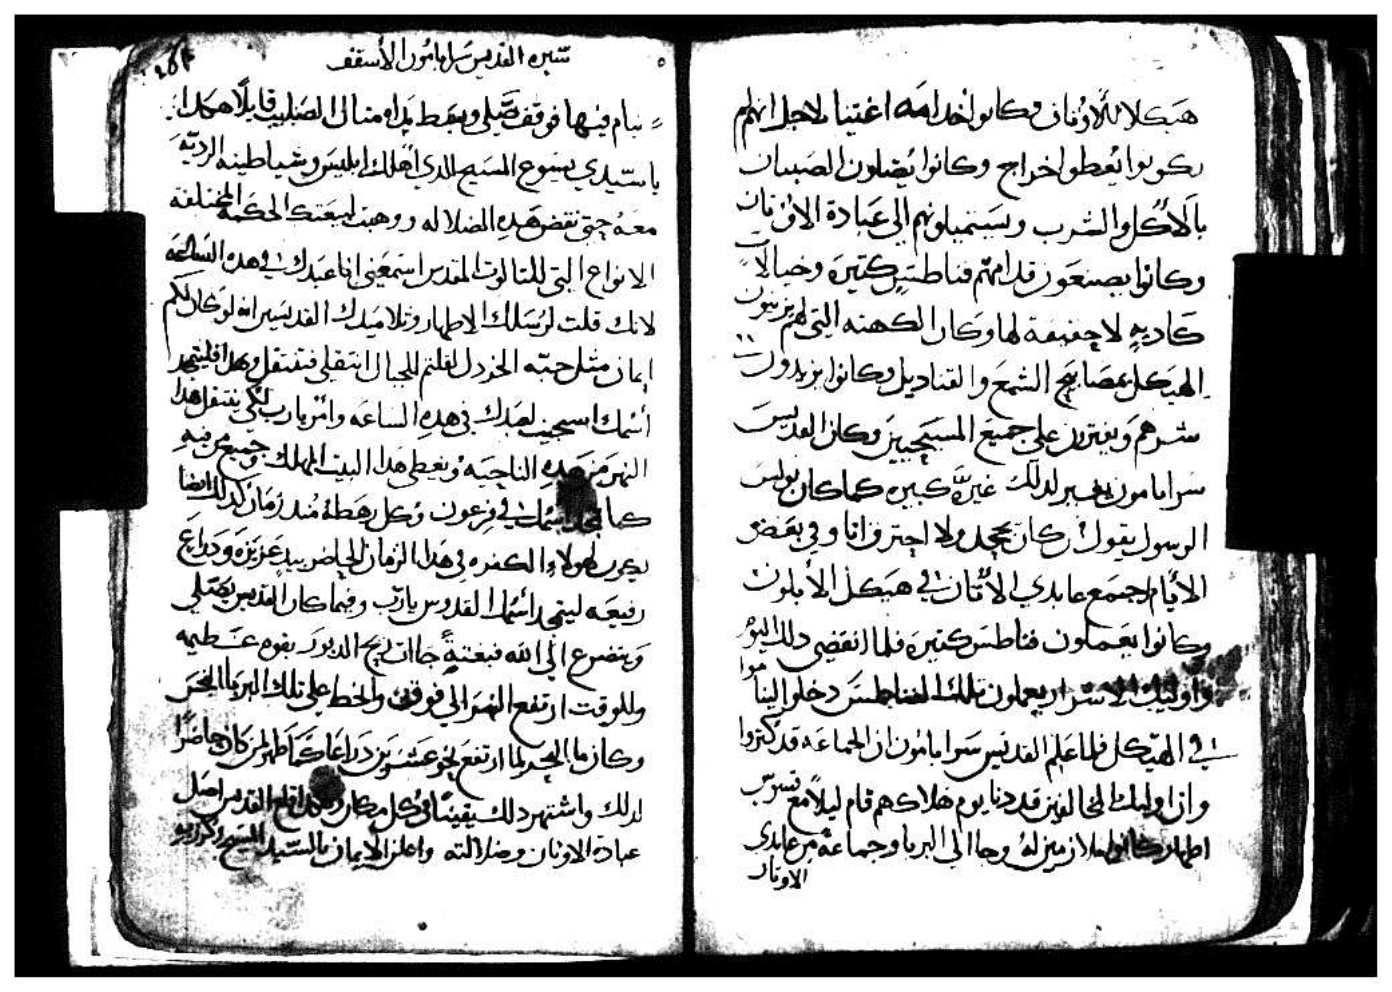 هيكلا للأوثان وكانوا خدامه اغنيا لاجل انهم
يكونوا يعطوا خراج وكانوا يضلون الصبيان
بالأكل والشرب ويستميلونهم الى عبادة الاوثان
وكانوا يصنعون قدامهم فناطسيس كتيره وخيالات
كاديه لا حقيقة لها وكان الكهنه التي لهم يزينون
الهيكل بمصابيح الشمع والقناديل وكانوا يزيدون
شرهم ويفترون على جميع المسيحيين وكان القديس
سرابامون يغير لدلك غيرة كبيره كما كان بولس
الرسول يقول من كان يجحد ولا احترق انا وفي بعض
الأيام اجتمع عابدي الأتان في هيكل الأبلون
وكانوا يعملون فناطس كتيره فلما انقضى دلك اليوم
واوليك الاشرار يعملون تلك الفناطس دخلوا ليناموا
في الهيكل فلما علم القديس سرابامون ان الجماعه قد كتروا
وان اوليك المخالفين قد دنا يوم هلاكهم قام ليلاً مع نسوس
اطهار كانوا ملازمين له وجا الى البربا وجماعة من عابدي
الاوتان
سيره القديس سرابامون الأسقف
نيام فيها فوقف يصلي وبسط يداه مثال الصليب قايلاً هكدا
يا سيدي يسوع المسيح الدي اهلك ابليس وشياطينه الرديه
معه حتى نقض هده الضلاله ووهبت لبيعتك الحكمه المختلفة
الانواع التي للتالوت المقدس استمعني انا عبدك في هده الساعه
لانك قلت لرسلك الاطهار وتلاميدك القديسين انه لو كان لكم
ايمان مثل حبه الخردل لقلتم للجبال انتقلي فتنتقل
اسمك استجيب لعبدك في هده الساعه وأمر يارب لكي ينتقل هدا
النهر من هده الناحيه ويغطي هدا البيت المهلك وجميع من فيه
كما تمجد اسمك في فرعون وكل رهطه مند زمان كدلك ايضا
يكون لهولاء الكفره في هدا الزمان الحاضر بيد عزيزه ودراع
رفيعه ليتمجد اسمك القدوس يارب وفيما كان القديس يصلي
ويتضرع الى الله فبغتةً جاات ريح الدبور بقوه عظيمه
وللوقت ارتفع النهر الى فوق وانحط على تلك البربا النجس
وكان ما الحجر لما ارتفع نحو عشرين دراعا كما ظهر لمن كان حاضرا
لدلك واشتهر دلك يقيناً في كل مكان وهكدا قلع القديس اصل
عبادة الاوتان وضلالته واعلن الايمان بالسيد المسيح